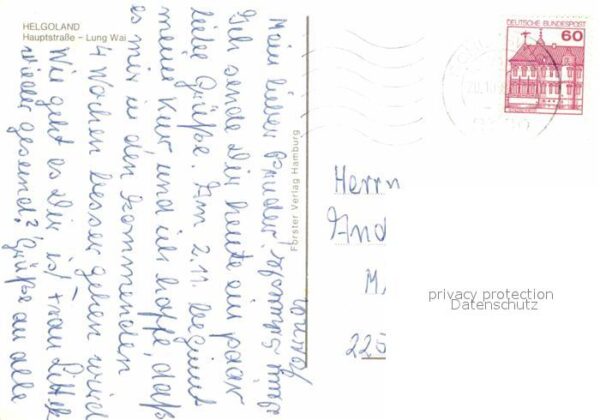 HELGOLAND
Hauptstraße – Lung Wai
DEUTSCHE BUNDESPOST
60
Mein lieber Bruder
Ich sende Dir heute ein paar
liebe Grüße. Am 2.11. beginnt
meine Kur und ich hoffe, daß
es mir in den kommenden
4 Wochen besser gehen wird
Wie geht es Dir, ist Frau
wieder gesund? Grüße an alle
Förster Verlag Hamburg
Herrn
And
M.
225
privacy protection
Datenschutz